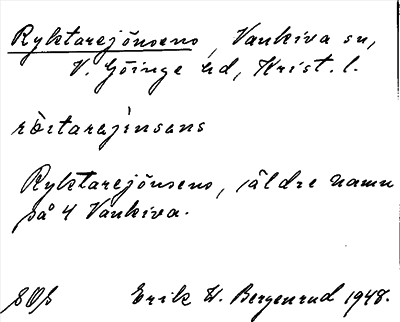 Ryktarejönsens, Vankiva sn,
V. Göinge hd, Krist. l.
röttarejinsens
Ryktarejönsens, äldre namn
på 4 Vankiva.
Erik W. Bergenrud 1948.